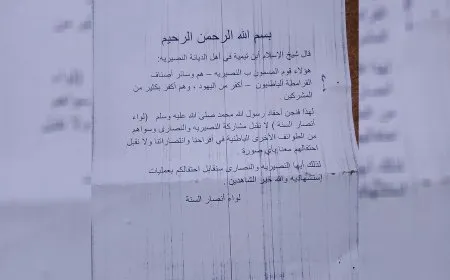 بسم الله الرحمن الرحيم
قال شيخ الاسلام ابن تيمية في أهل الديانة النصيرية:
هؤلاء قوم المسمون ب النصيرية – هم وسائر أصناف
القرامطة الباطنيون – أكفر من اليهود ، وهم أكفر بكثير من
المشركين .
لهذا فنحن أحفاد رسول الله محمد صلى الله عليه وسلم (لواء
أنصار السنة ) لا نقبل مشاركة النصيرية والنصارى وسواهم
من الطوائف الأخرى الباطنية في أفراحنا وانتصاراتنا ولا نقبل
احتفالهم معنا بأي صورة .
لذلك أيها النصيرية والنصارى سنقابل احتفالكم بعمليات
إستشهادية والله خير الشاهدين .
لواء أنصار السنة